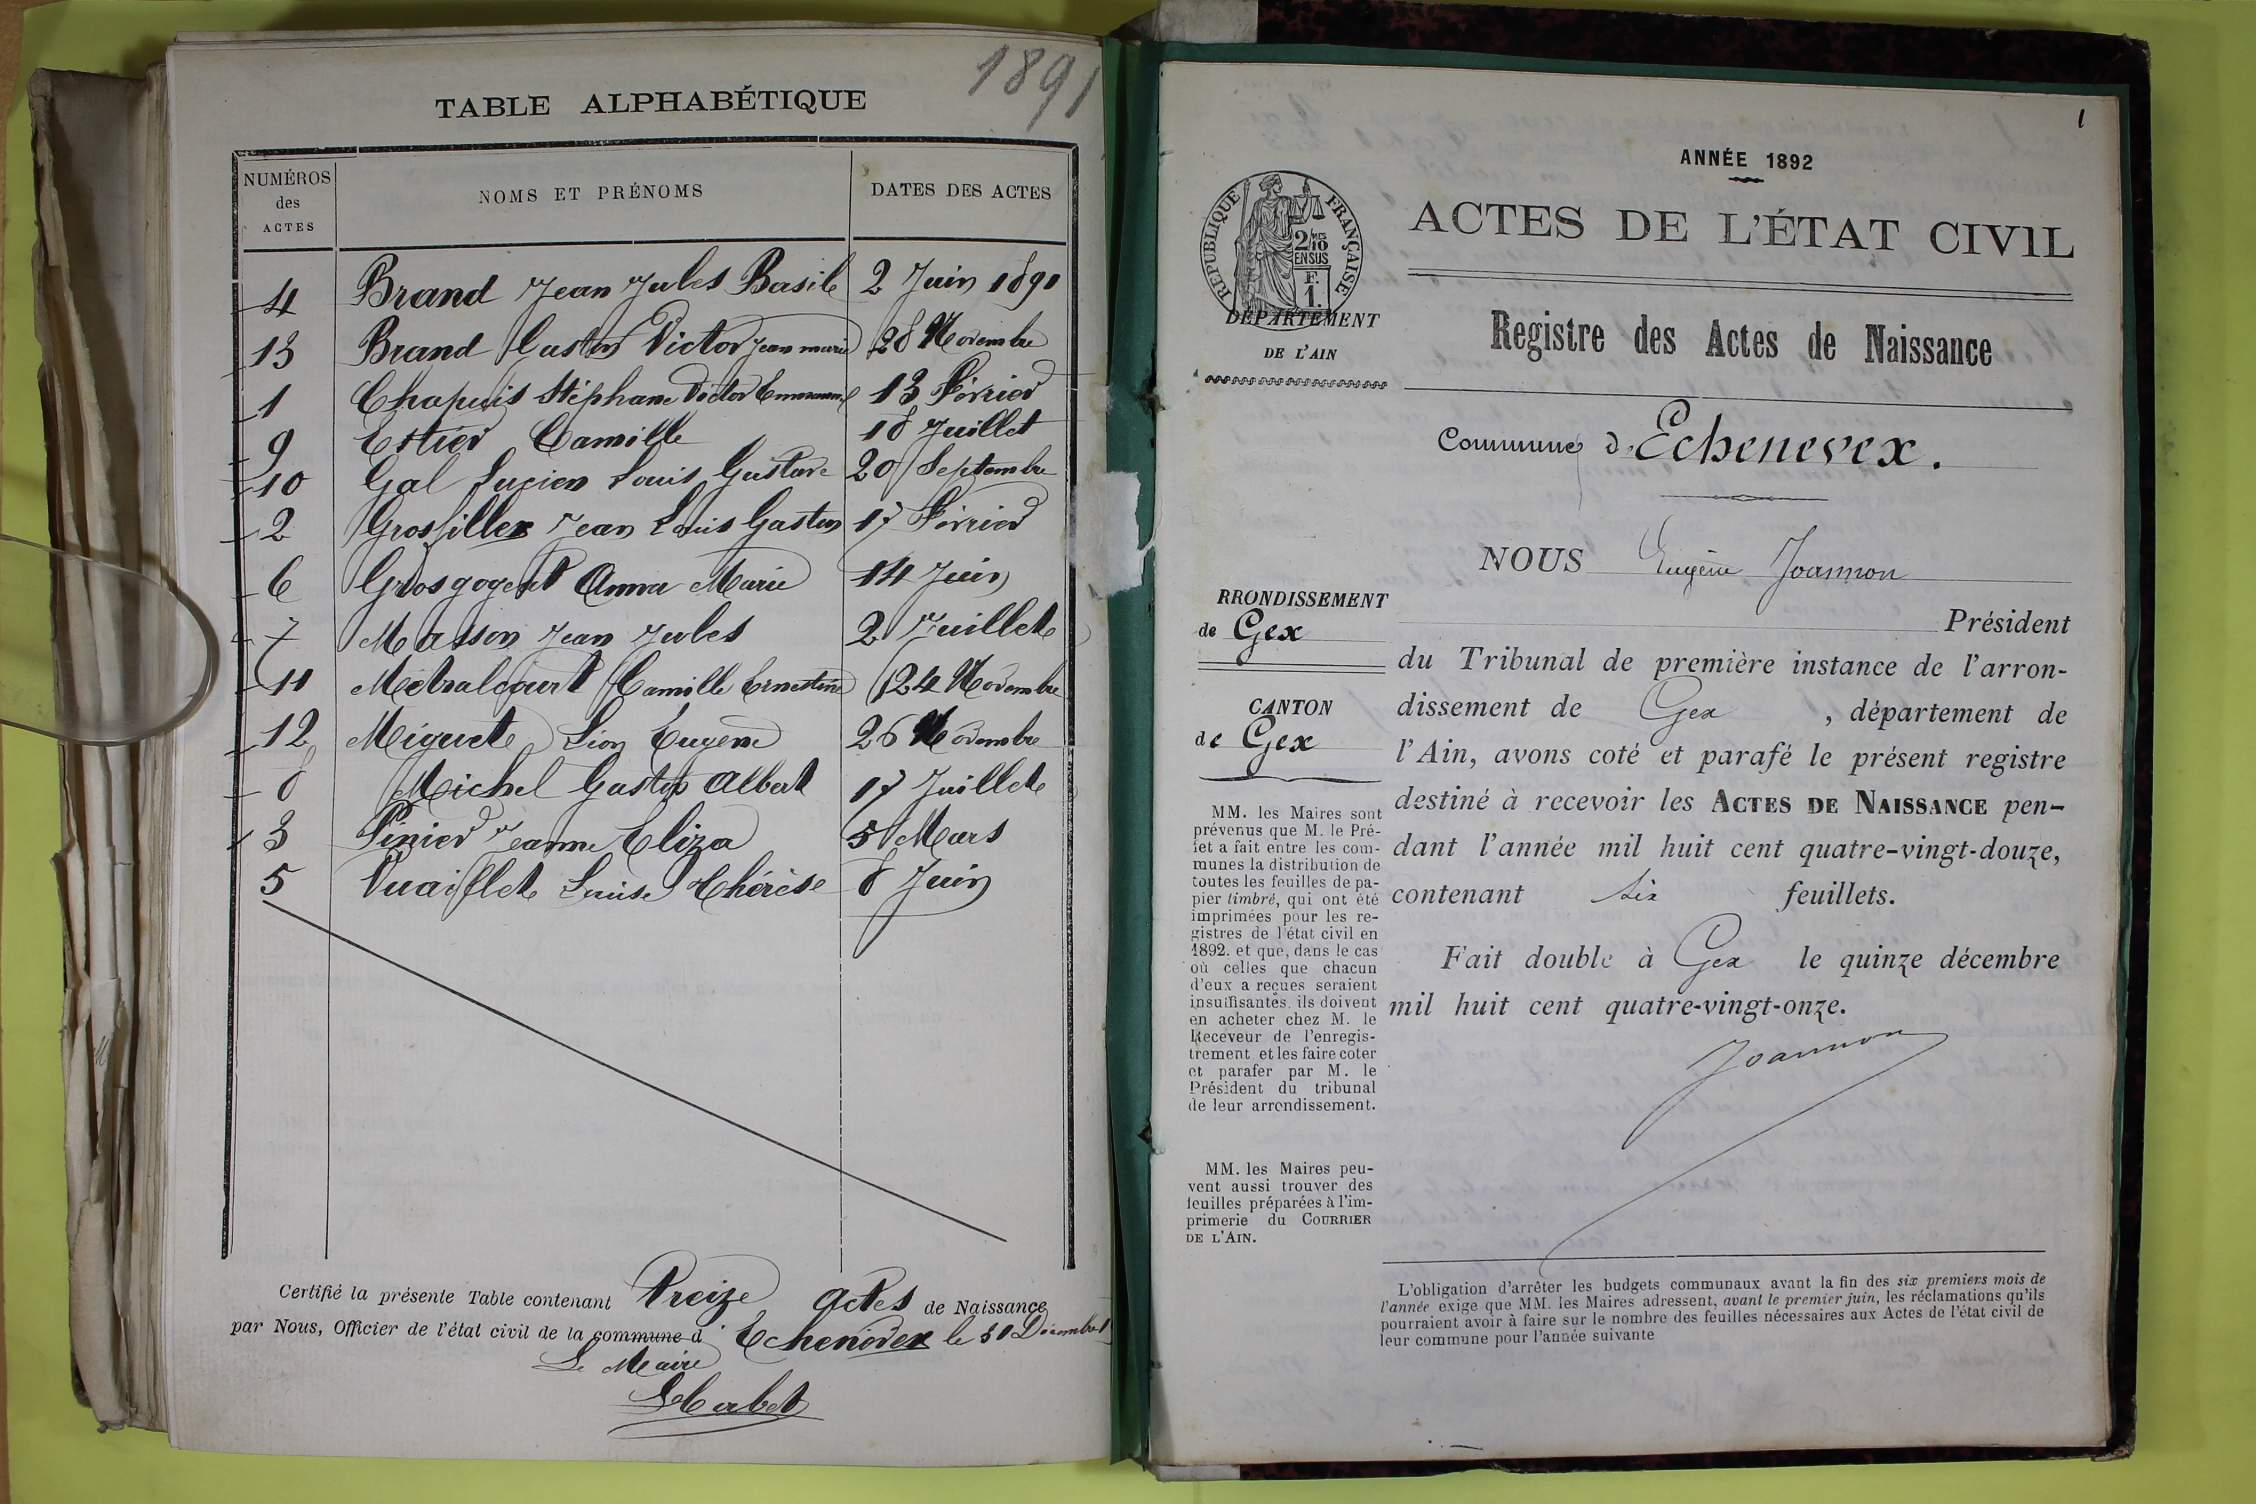 1891
TABLE ALPHABÉTIQUE
NUMÉROS
des
ACTES
NOMS ET PRÉNOMS
DATES DES ACTES
4 Brand Jean Jules Basile 2 Juin 1891
13 Brand Gaston Victor Jean marie 28 Novembre
1 Chapuis Stéphane Victor Emmanuel 13 Février
9 Estier Camille 18 Juillet
10 Gal Lucien Louis Gustave 20 Septembre
2 Grosfillex Jean Louis Gaston 17 Février
6 Grosgogeat Anna Marie 14 Juin
7 Masson Jean Jules 2 Juillet
11 Métralcourt Camille Ernestine 24 Novembre
12 Miguet Léon Eugène 26 Novembre
8 Michel Gaston Albert 17 Juillet
3 Pinier Jeanne Eliza 5 Mars
5 Vuaillet Louise Thérèse 8 Juin
Certifié la présente Table contenant Treize actes de Naissance
par Nous, Officier de l'état civil de la commune d'Echenevex le 31 Décembre
Le Maire
1
ANNÉE 1892
RÉPUBLIQUE FRANÇAISE
2/10 MES
EN SUS
F.
1.
ACTES DE L'ÉTAT CIVIL
DÉPARTEMENT
DE L'AIN
Registre des Actes de Naissance
Commune d'Echenevex.
NOUS Eugène Joannon
RRONDISSEMENT
de Gex
Président
du Tribunal de première instance de l'arron-
dissement de Gex, département de
l'Ain, avons coté et parafé le présent registre
destiné à recevoir les ACTES DE NAISSANCE pen-
dant l'année mil huit cent quatre-vingt-douze,
contenant six feuillets.
Fait double à Gex le quinze décembre
mil huit cent quatre-vingt-onze.
Joannon
CANTON
de Gex
MM. les Maires sont
prévenus que M. le Pré-
fet a fait entre les com-
munes la distribution de
toutes les feuilles de pa-
pier timbré, qui ont été
imprimées pour les re-
gistres de l'état civil en
1892. et que, dans le cas
où celles que chacun
d'eux a reçues seraient
insuffisantes, ils doivent
en acheter chez M. le
Receveur de l'enregis-
trement et les faire coter
et parafer par M. le
Président du tribunal
de leur arrondissement.
MM. les Maires peu-
vent aussi trouver des
feuilles préparées à l'im-
primerie du COURRIER
DE L'AIN.
L'obligation d'arrêter les budgets communaux avant la fin des six premiers mois de
l'année exige que MM. les Maires adressent, avant le premier juin, les réclamations qu'ils
pourraient avoir à faire sur le nombre des feuilles nécessaires aux Actes de l'état civil de
leur commune pour l'année suivante